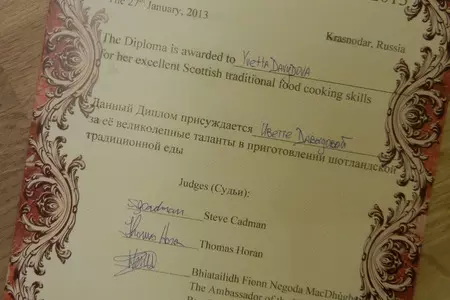 The 27th January, 2013
2013
Krasnodar, Russia
The Diploma is awarded to Yvetta Davydova
for her excellent Scottish traditional food cooking skills
Данный Диплом присуждается Иветте Давыдовой
за её великолепные таланты в приготовлении шотландской
традиционной еды
Judges (Судьи):
Steve Cadman
Thomas Horan
Bhiatailidh Fionn Negoda
The Ambassador of